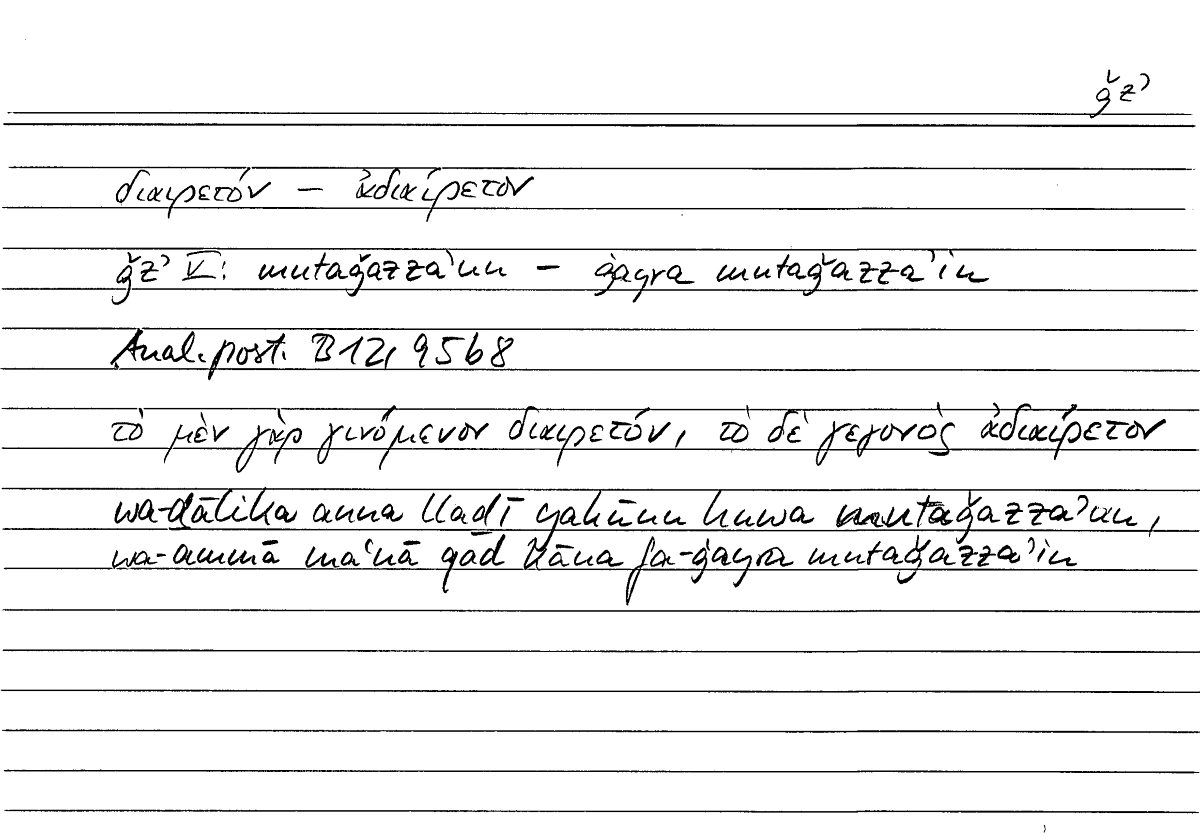 ǧzʾ
διαιρετόν – ἀδιαίρετον
ǧzʾ V: mutaǧazzaʾun – ġayra mutaǧazzaʾin
Anal. post. B12, 95b8
τὸ μὲν γὰρ γινόμενον διαιρετόν, τὸ δὲ γεγονὸς ἀδιαίρετον
wa-ḏālika anna lladī yakūnu huwa mutaǧazzaʾun,
wa-ammā maʿnā qad kāna fa-ġayra mutaǧazzaʾin